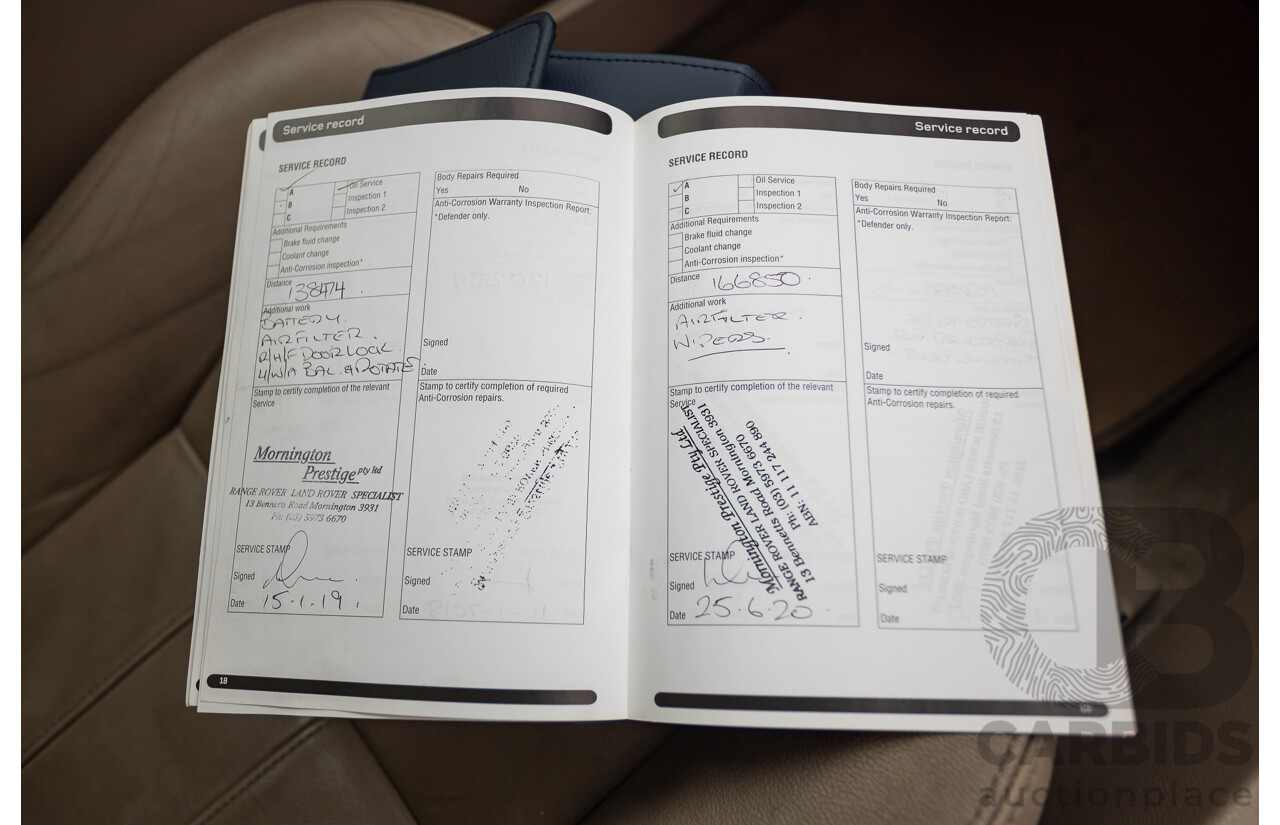 Service record
SERVICE RECORD
A
B
C
Oil Service
Inspection 1
Inspection 2
Additional Requirements
Brake fluid change
Coolant change
Anti-Corrosion inspection*
Distance 138474.
Additional work
BATTERY.
AIRFILTER.
R/H/F DOOR LOCK.
4/W/A BAL & ROTATE.
Stamp to certify completion of the relevant
Service
Mornington
Prestige pty ltd
RANGE ROVER LAND ROVER SPECIALIST
13 Bennetts Road Mornington 3931
Ph: (03) 5973 6670
SERVICE STAMP
Signed
Date 15.1.19.
Body Repairs Required
Yes No
Anti-Corrosion Warranty Inspection Report:
*Defender only.
Signed
Date
Stamp to certify completion of required
Anti-Corrosion repairs.
SERVICE STAMP
Signed
Date
18
Service record
SERVICE RECORD
A
B
C
Oil Service
Inspection 1
Inspection 2
Additional Requirements
Brake fluid change
Coolant change
Anti-Corrosion inspection*
Distance 166850.
Additional work
AIRFILTER.
WIPERS.
Stamp to certify completion of the relevant
Service
Mornington Prestige Pty Ltd
RANGE ROVER LAND ROVER SPECIALIST
13 Bennetts Road Mornington 3931
Ph: (03) 5973 6670
ABN: 11 117 244 890
SERVICE STAMP
Signed
Date 25.6.20.
Body Repairs Required
Yes No
Anti-Corrosion Warranty Inspection Report:
*Defender only.
Signed
Date
Stamp to certify completion of required
Anti-Corrosion repairs.
SERVICE STAMP
Signed
Date
CARBIDS
auctionplace